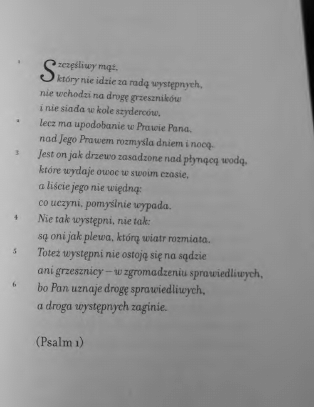 1 Szczęśliwy mąż,
który nie idzie za radą występnych,
nie wchodzi na drogę grzeszników
i nie siada w kole szyderców,
2 lecz ma upodobanie w Prawie Pana,
nad Jego Prawem rozmyśla dniem i nocą.
3 Jest on jak drzewo zasadzone nad płynącą wodą,
które wydaje owoc w swoim czasie,
a liście jego nie więdną:
co uczyni, pomyślnie wypada.
4 Nie tak występni, nie tak:
są oni jak plewa, którą wiatr rozmiata.
5 Toteż występni nie ostoją się na sądzie
ani grzesznicy – w zgromadzeniu sprawiedliwych,
6 bo Pan uznaje drogę sprawiedliwych,
a droga występnych zaginie.
(Psalm 1)